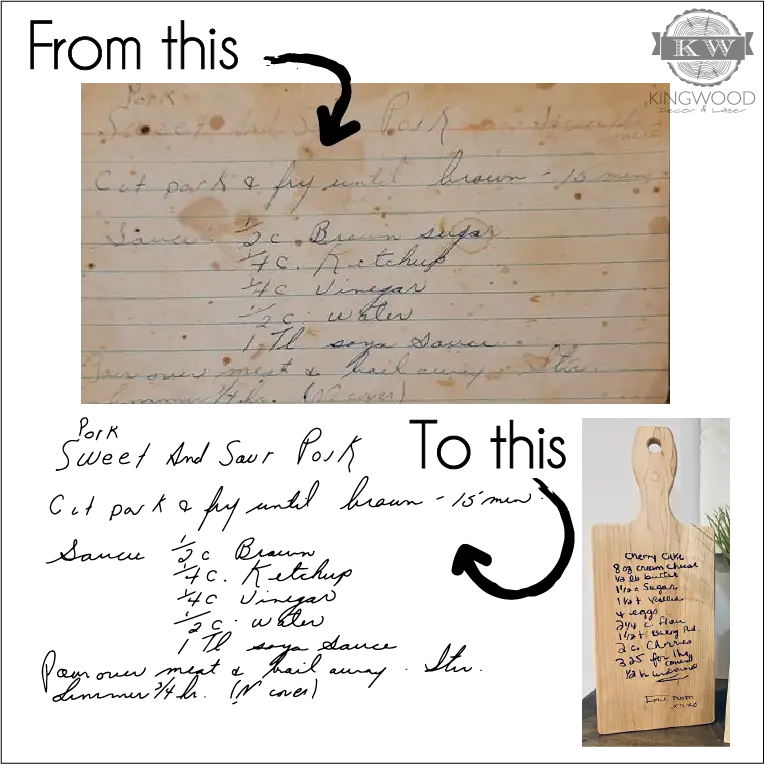 From this
KW
KINGWOOD
Decor & Laser
Pork
Sweet And Sour Pork
Cut pork & fry until brown - 15 min
Sauce 1/2 c Brown sugar
1/4 c. Ketchup
1/4 c Vinegar
1/2 c. water
1 Tl soya sauce
Pour over meat & boil away. Stir.
Simmer 3/4 hr. (No cover)
To this
Pork
Sweet And Sour Pork
Cut pork & fry until brown - 15 min.
Sauce 1/2 c Brown
1/4 c. Ketchup
1/4 c Vinegar
1/2 c. water
1 Tl soya sauce
Pour over meat & boil away. Stir.
Simmer 3/4 hr. (N cover)
Cherry Cake
8 oz cream cheese
1/2 lb butter
1 1/2 c Sugar
1 1/2 t Vanilla
4 eggs
2 1/4 c. flour
1 1/2 t Baking Pd.
2 c. Cherries
325 for 1 hr
Love mom
xoxo